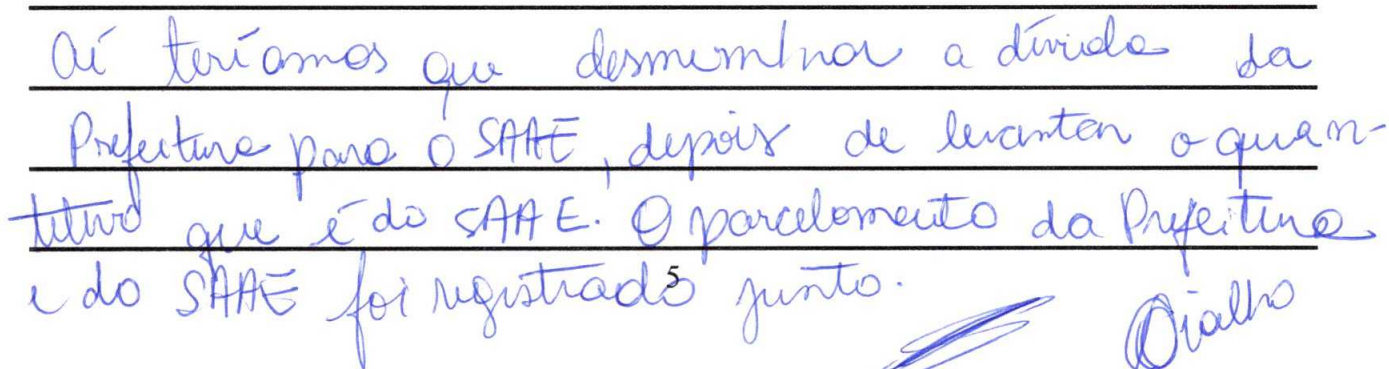 Aí teríamos que desmembrar a dívida da
Prefeitura para o SAAE, depois de levantar o quan-
titivo que é do SAAE. O parcelamento da Prefeitura
e do SAAE foi registrado junto.
5